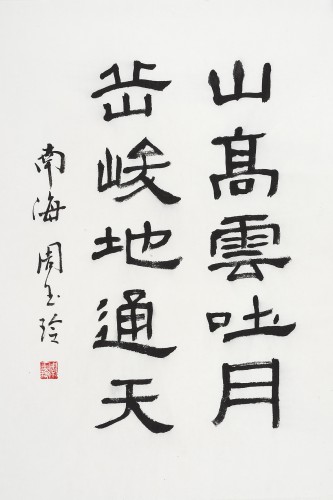 山髙雲吐月
岳峻地通天
南海周玉玲